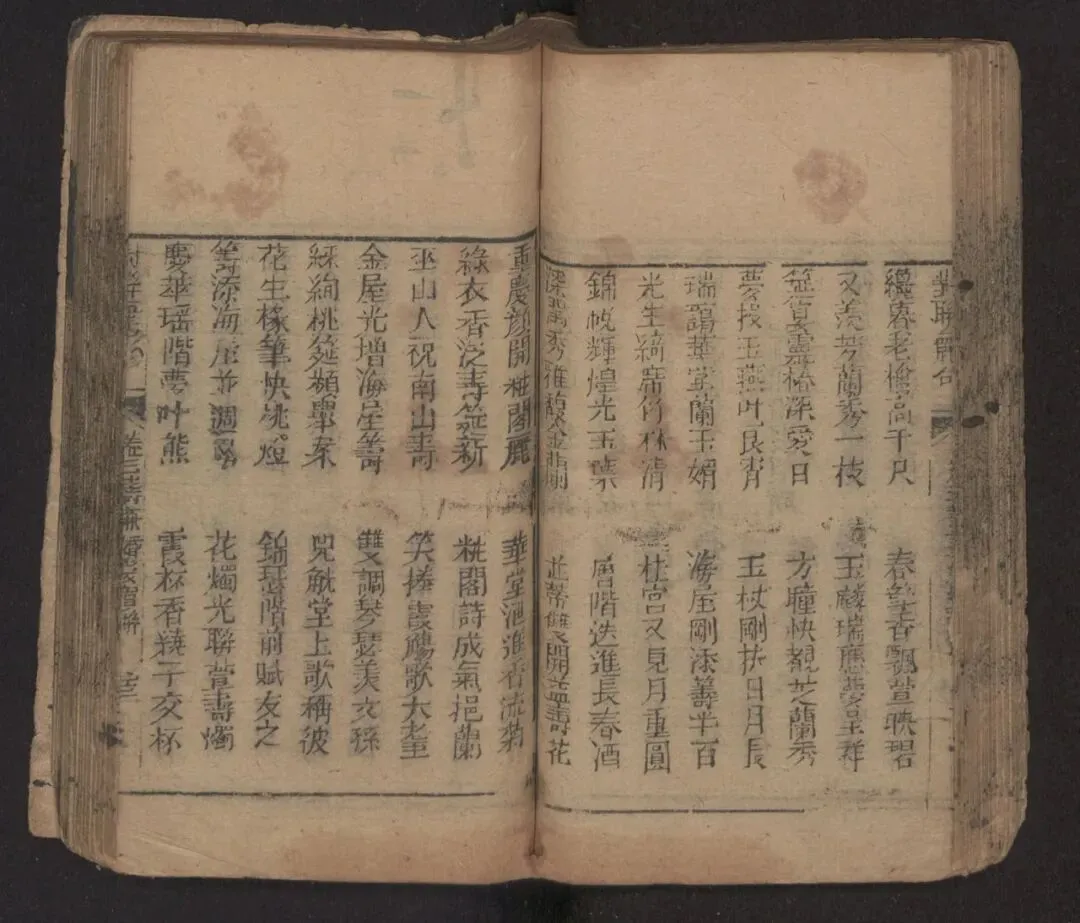 對聯
纔春老檜高千尺
春 香飄萱映碧
又羨芳蘭秀一枝
玉麟瑞應夢呈祥
筵宴靈椿深愛日
方瞳快覩芝蘭秀
夢投玉燕此良宵
玉杖剛扶日月長
瑞謁華堂蘭玉媚
海屋剛添籌半百
光生綺席竹林清
杜宮又見月重圓
錦帨輝煌光玉葉
唐階迭進長春酒
秀
雙開益壽花
重慶顏開袖閣麗
華堂酒進香流菊
綵衣香泛壽筵新
粧閣詩成氣挹蘭
巫山人祝南山壽
笑捧霞觴歌大耋
金屋光增海屋籌
雙調琴瑟美文孫
綵絢桃筵頻舉案
兕觥堂上歌稱彼
花生椽筆快挑燈
錦瑟階前賦友之
籌添海屋並週
花燭光聯萱壽燭
慶華瑤階夢叶熊
霞杯香繞子交杯
卷三